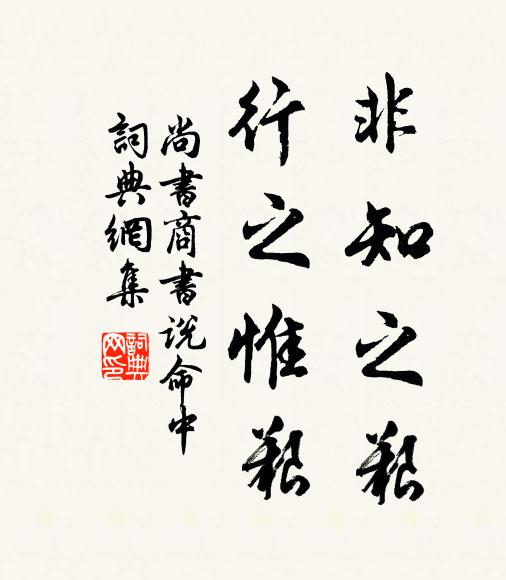 非知之艱
行之惟艱
尚書商書说命中
詞典網集
詞典
网印